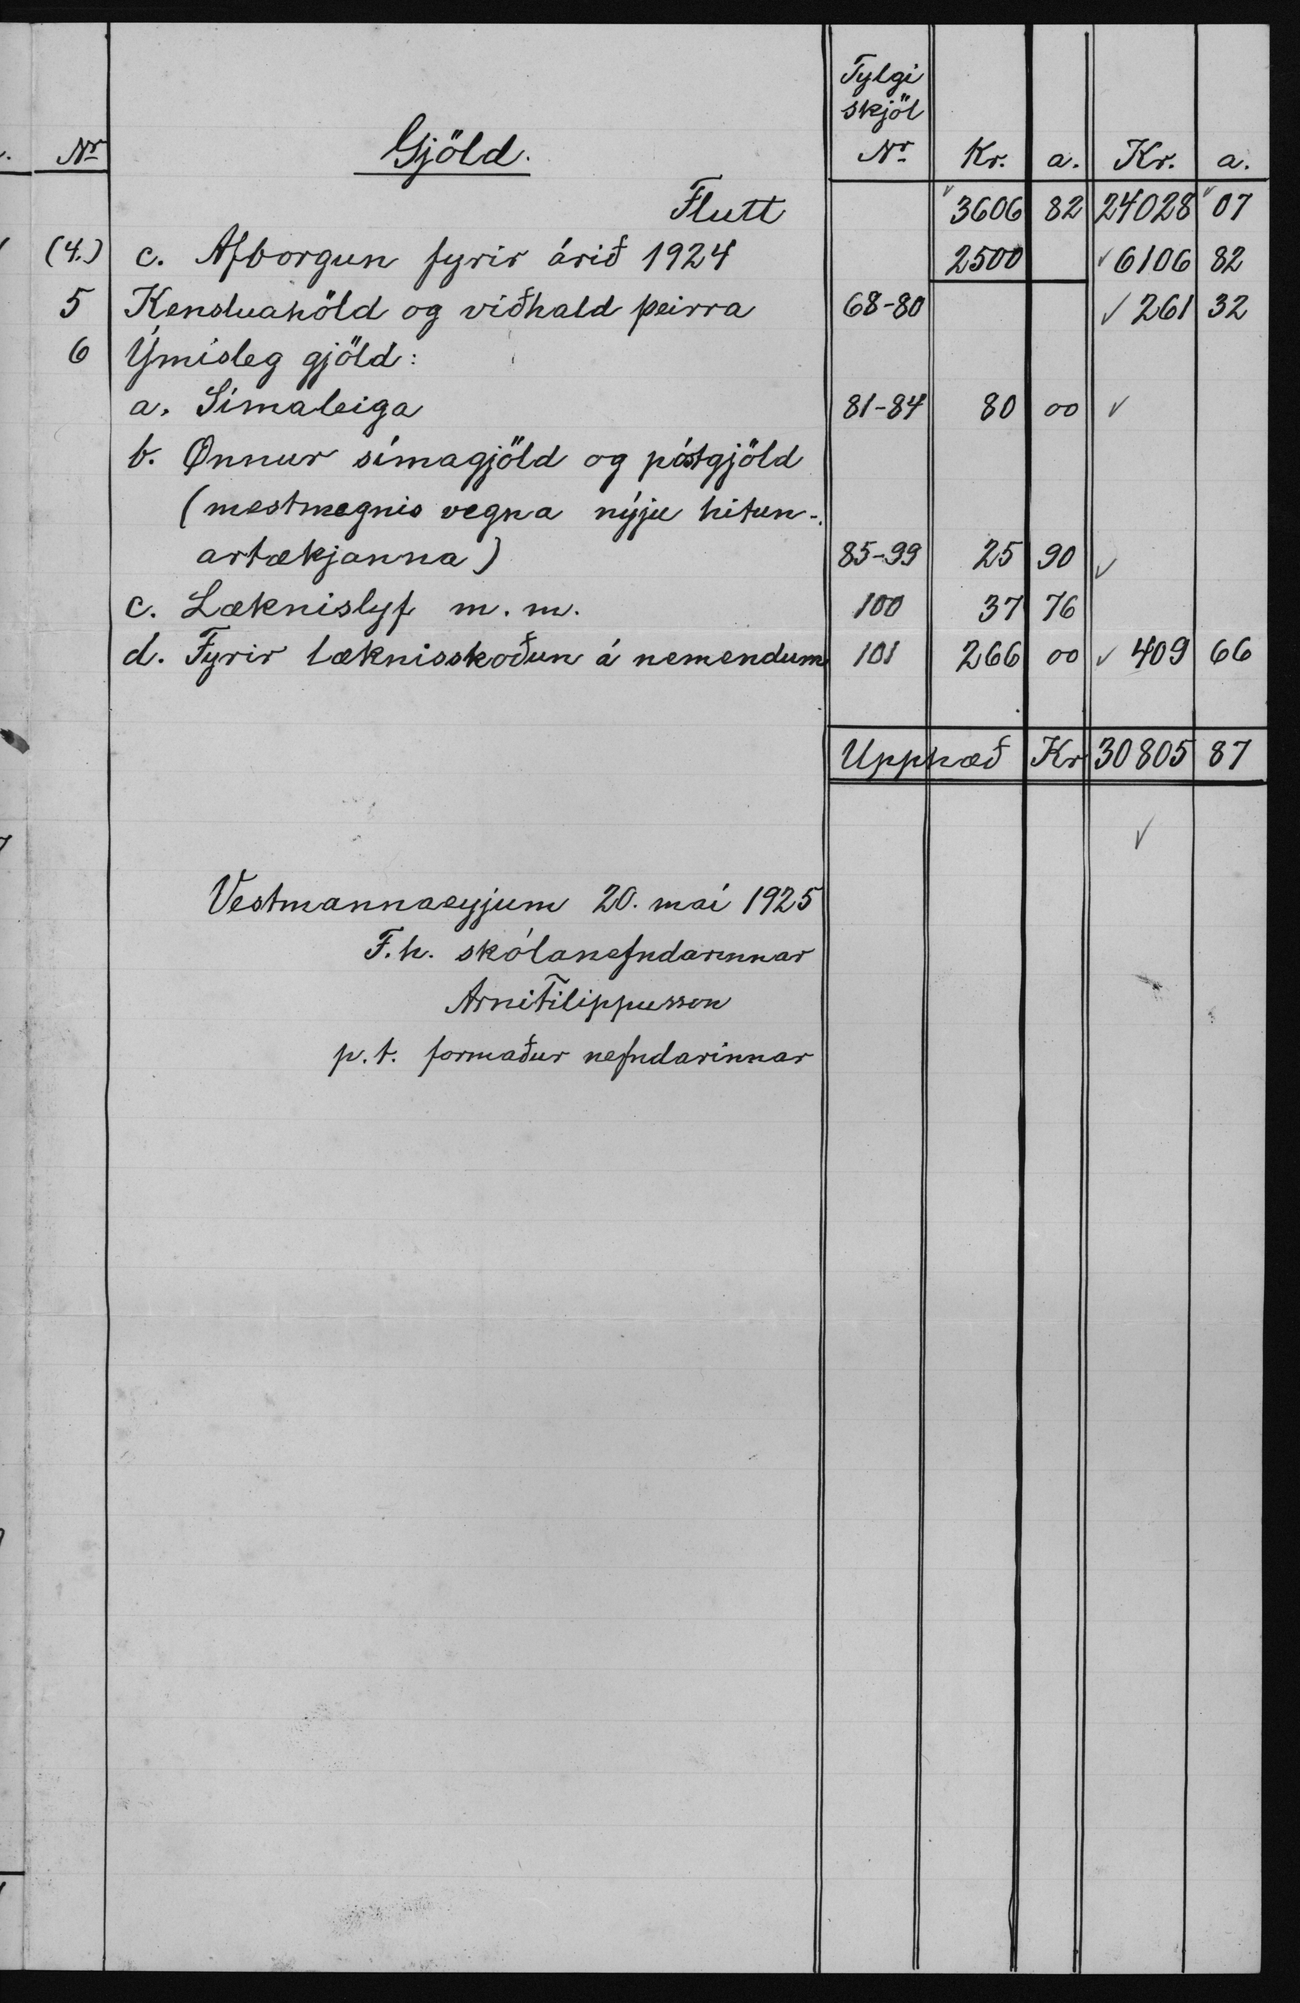 Fylgi
skjöl
Nr Gjöld. Nr Kr. a. Kr. a.
Flutt 3606 82 24028 07
(4.) c. Afborgun fyrir árið 1924 2500 6106 82
5 Kensluahöld og viðhald þeirra 68-80 261 32
6 Ýmisleg gjöld:
a. Símaleiga 81-84 80 00
b. Önnur símagjöld og póstgjöld
(mestmegnis vegna nýju hitun-
artækjanna) 85-99 25 90
c. Læknislyf m. m. 100 37 76
d. Fyrir læknisskoðun á nemendum 101 266 00 409 66
Upphæð Kr 30805 87
Vestmannaeyjum 20. maí 1925
F.h. skólanefndarinnar
Árni Filippusson
p.t. formaður nefndarinnar